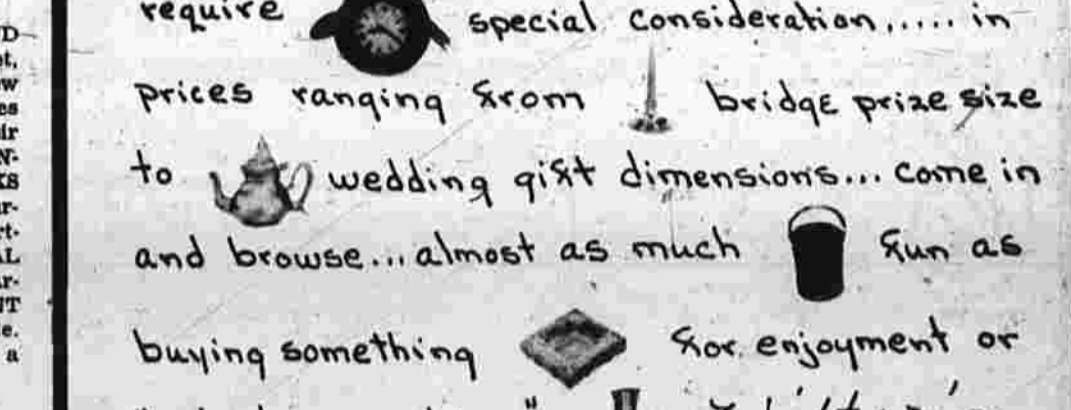 require special consideration..... in
prices ranging from bridge prize size
to wedding gift dimensions... come in
and browse... almost as much fun as
buying something for enjoyment or